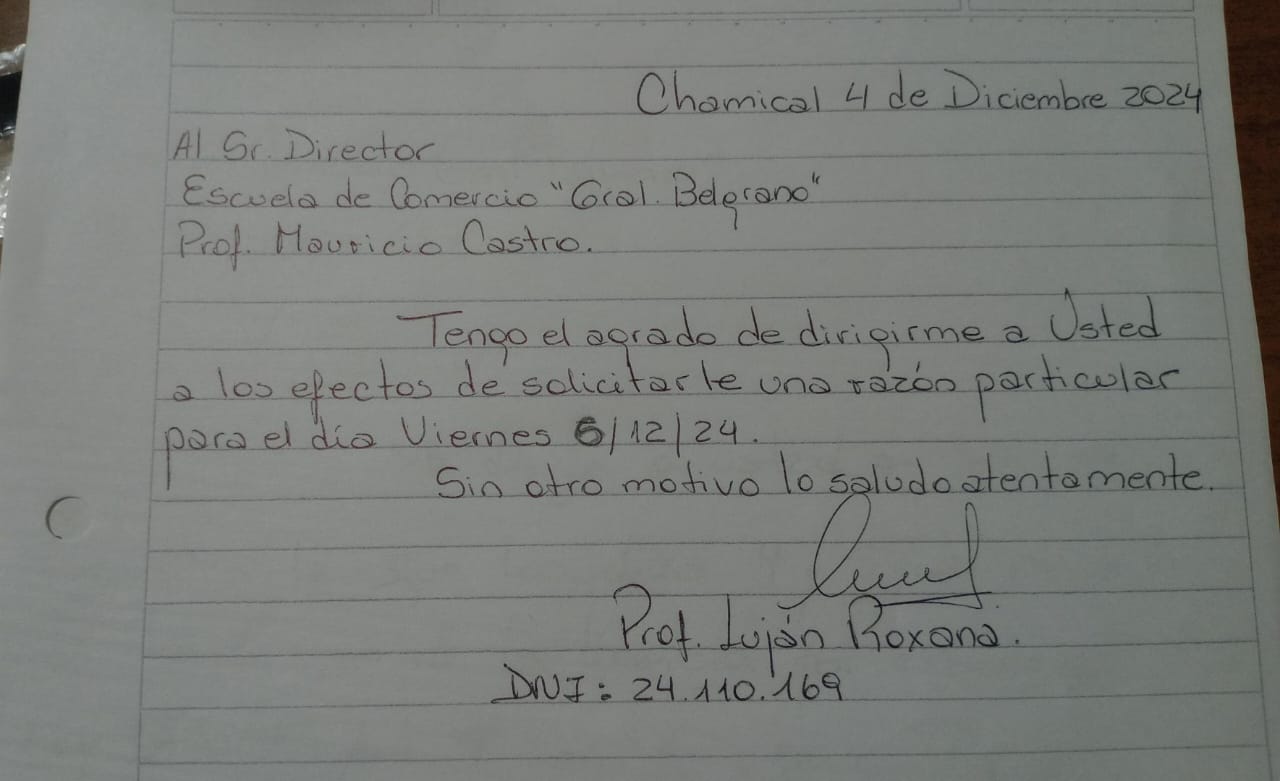 Chamical 4 de Diciembre 2024
Al Sr. Director
Escuela de Comercio "Gral. Belgrano"
Prof. Mauricio Castro.
Tengo el agrado de dirigirme a Usted
a los efectos de solicitarle una razón particular
para el día Viernes 6/12/24.
Sin otro motivo lo saludo atentamente.
Prof. Luján Roxana.
DNI: 24.110.169